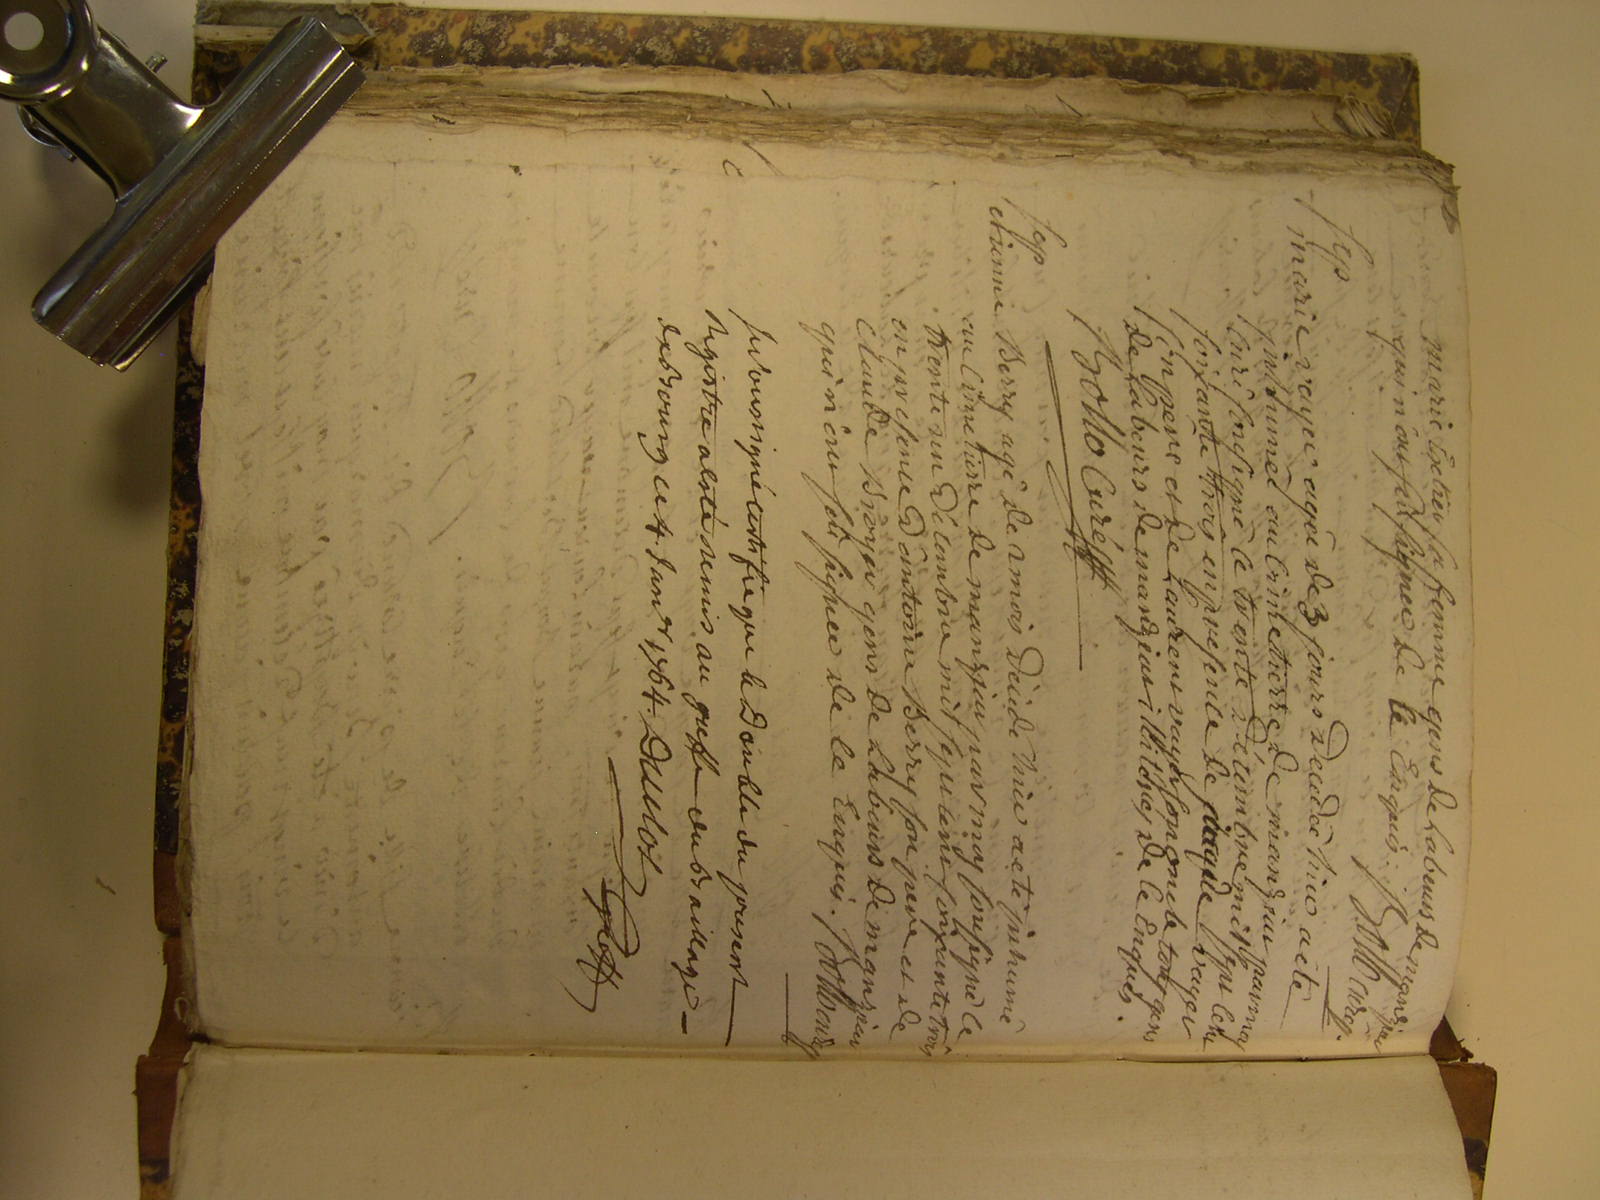 marie Extier sa femme gens de Labeurs de manziau
qui n'ont sçu signer de ce Enquis. Rollo curé
sep
marie vayer agée de 3 jours décédée hier a eté
inhumée au cimetierre de manziau par moy
Curé soussigné le trente décembre mil sept cent
soixante trois en presence de vayer
son pere et de Laurent vayer son oncle tous gens
de Labeurs de manziau illitérés de ce Enquis.
Rollo Curé
sep
etienne Berry agé de 2 mois décédé hier a eté inhumé
au Cimetierre de manziau par moy soussigné le
trente un décembre mil sept cent soixante trois
en presence d'antoine Berry son pere et de
Claude gens de Labeurs de manziau
qui n'ont sçu signer de ce Enquis. Rollo curé
Je soussigné certifie que le Double du present
Registre a eté remis au greffe du Bailliage
de Bourg ce 4 Janv 1764